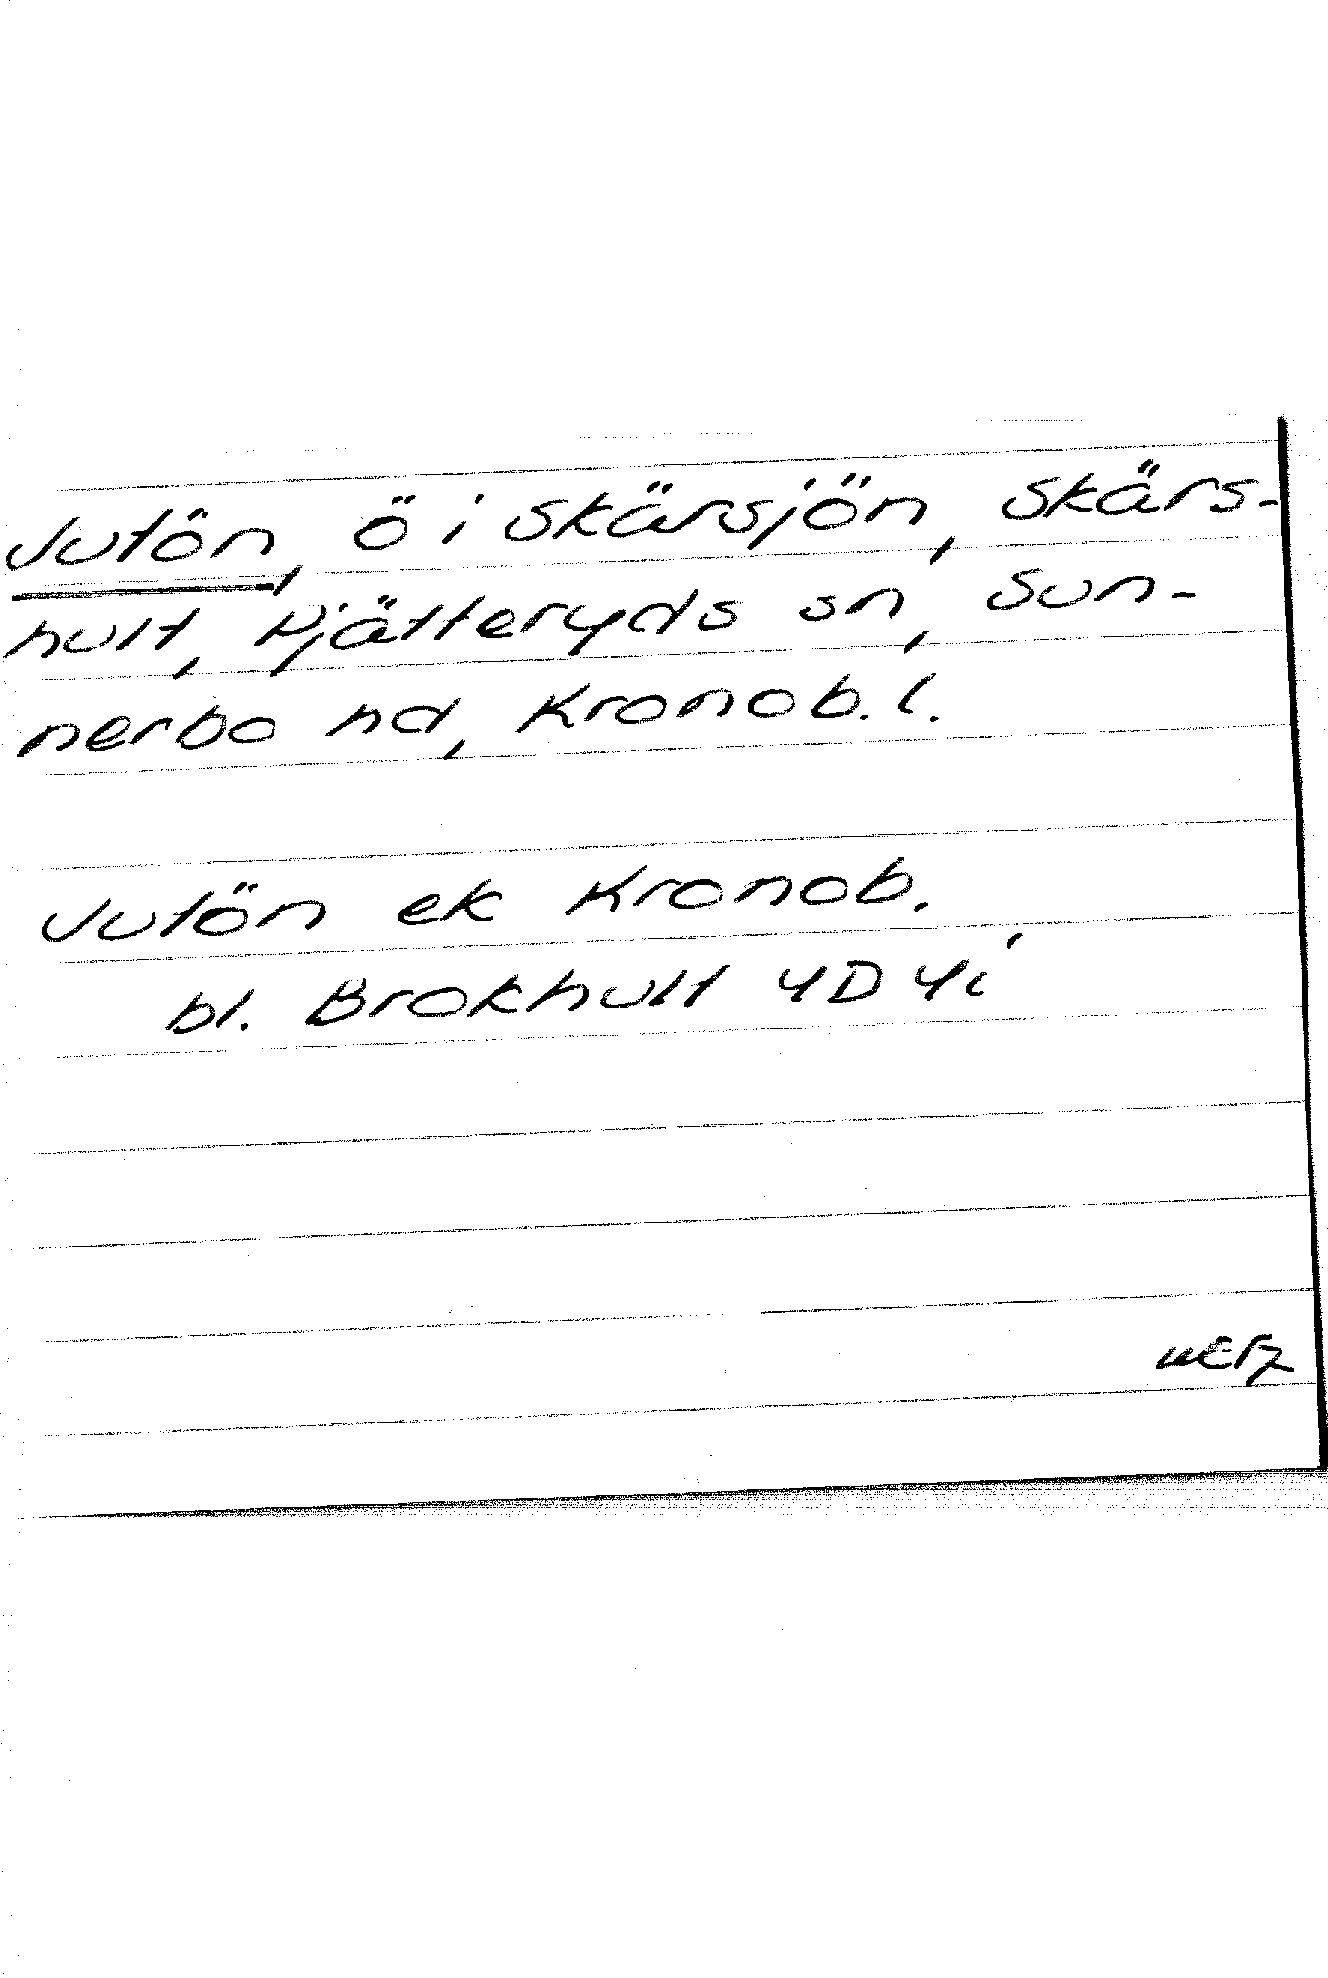 Jutön, ö i Skärsjön, Skärs-
hult, Hjätteryds sn, Sun-
nerbo hd, Kronob. l.
Jutön ek Kronob.
bl. Brokhult 4D 4i